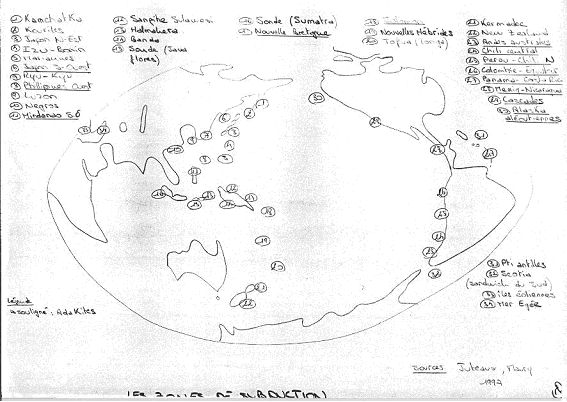 ① Kamchatka
② Kouriles
③ Japon N.Est
④ Izu-Bonin
⑤ Mariannes
⑥ Japon S-Ouest
⑦ Ryu-Kyu
⑧ Philippines Ouest
⑨ Luzon
⑩ Negros
⑪ Mindanao SO
⑫ Sangihe Sulawesi
⑬ Halmahera
⑭ Banda
⑮ Sonde (Java
flores)
⑯ Sonde (Sumatra)
⑰ Nouvelle Bretagne
⑲ Nouvelles Hébrides
⑳ Tofua (Tonga)
㉑ Kermadec
㉒ New Zealand
㉓ Andes australes
㉔ Chili central
㉕ Perou-Chili N
㉖ Colombie-Equateur
㉗ Panama-Costa Rica
㉘ Mexin-Nicaragua
㉙ Cascades
㉚ Alaska
aléoutiennes
㉛ Pti antilles
㉜ Scotia
(sandwich du Sud)
㉝ iles éoliennes
㉞ Mer Egée
Légende
souligné : Adakites
Sources Juteau, Maury
1997
LES ZONES DE SUBDUCTION